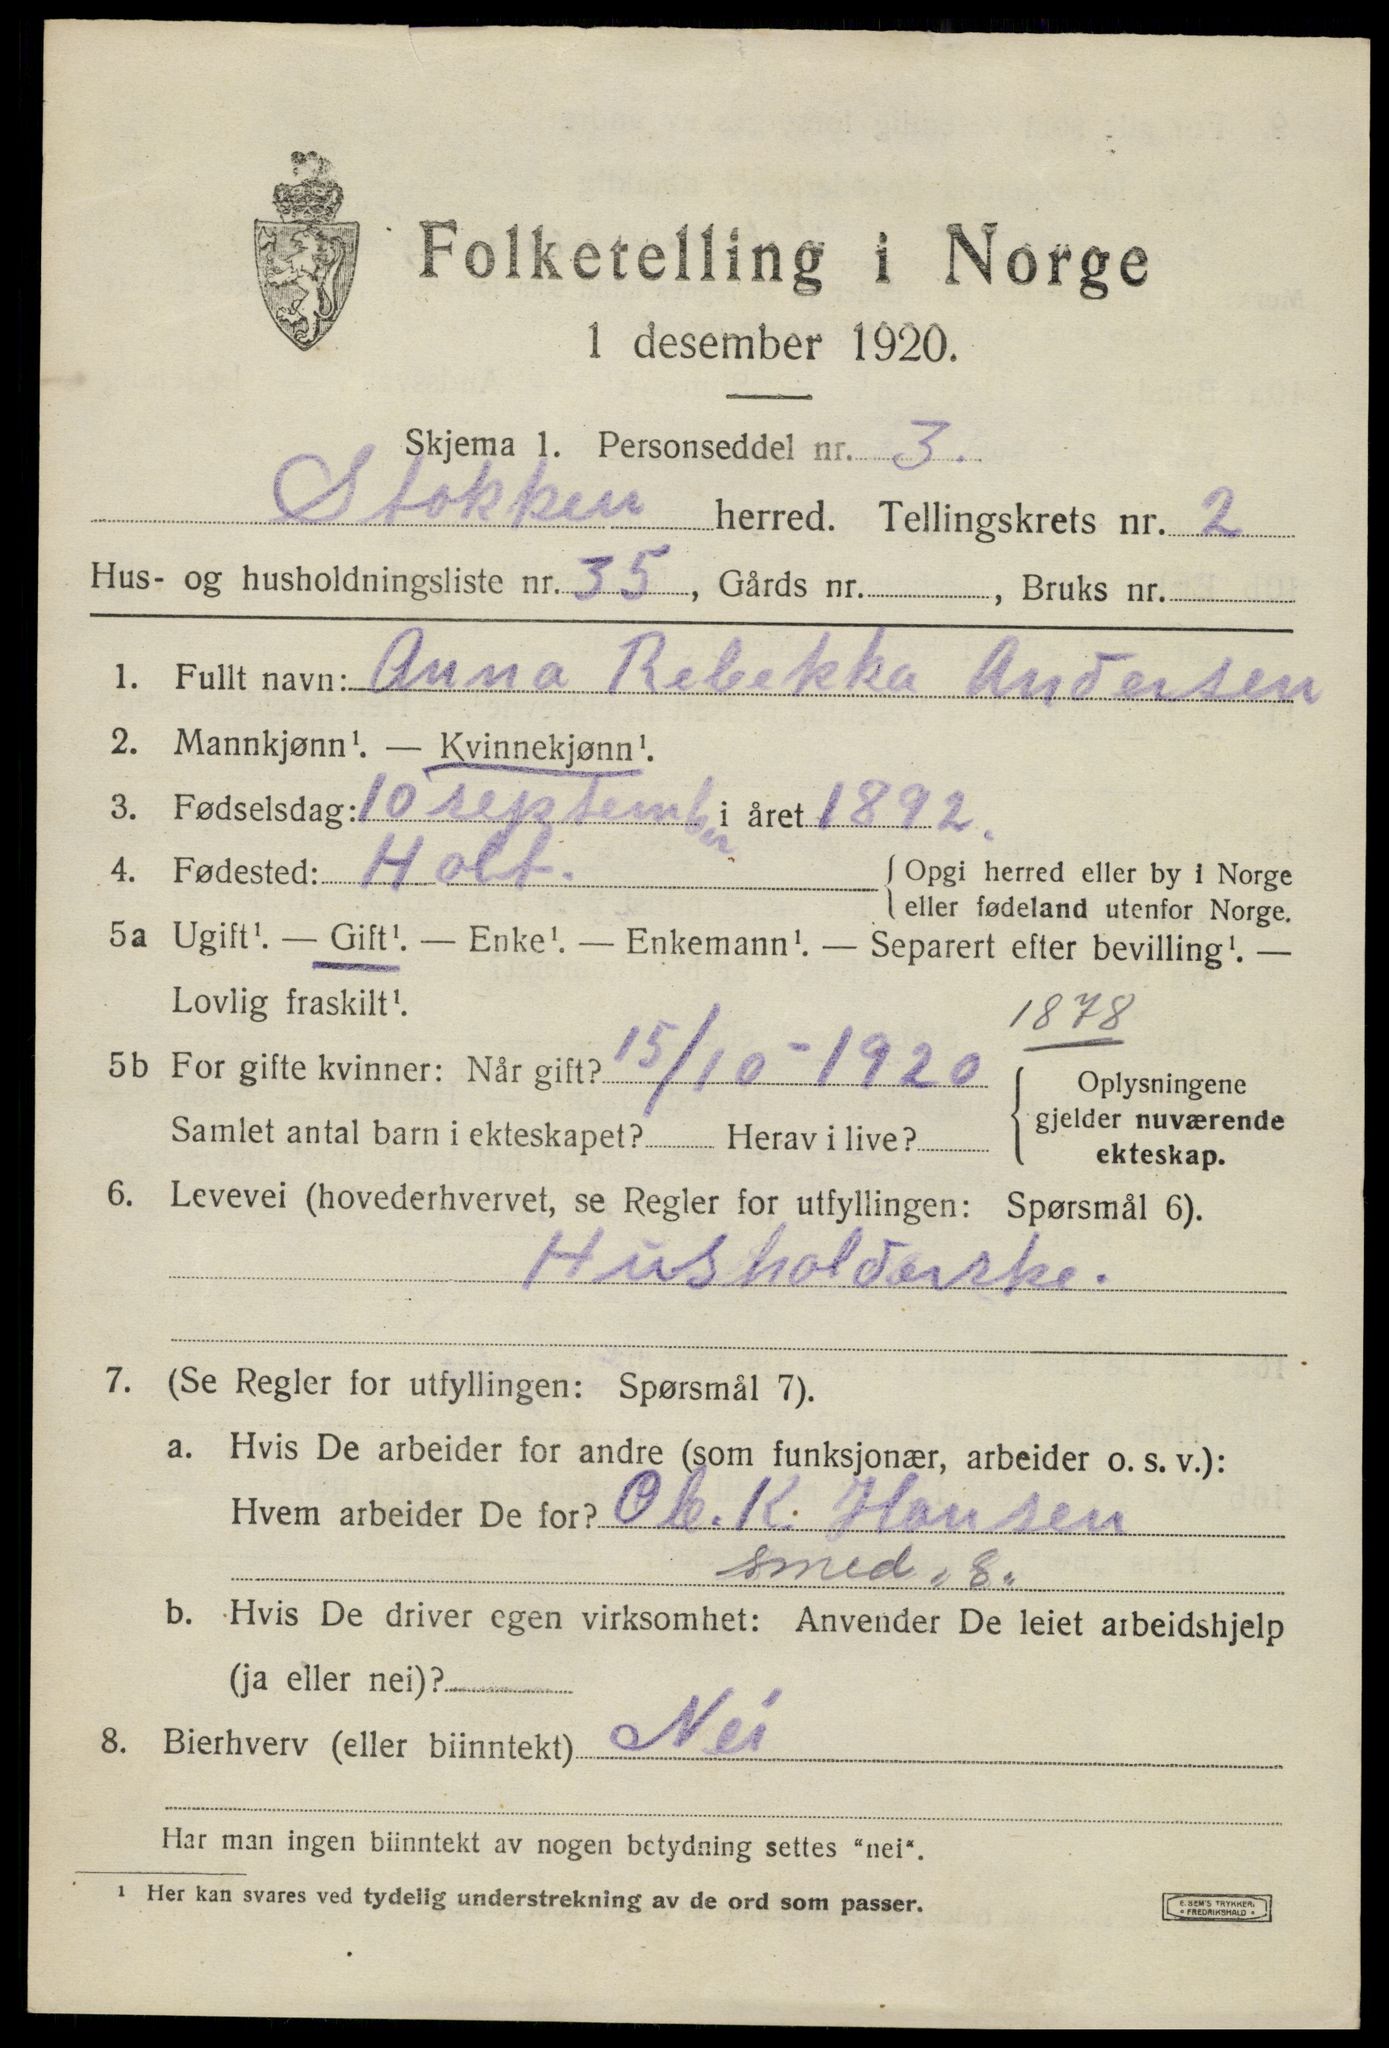 Folketelling i Norge
1 desember 1920.
Skjema 1. Personseddel nr. 3.
Stokken herred. Tellingskrets nr. 2
Hus- og husholdningsliste nr. 35, Gårds nr. , Bruks nr.
1. Fullt navn: Anna Rebekka Andersen
2. Mannkjønn¹. — Kvinnekjønn¹.
3. Fødselsdag: 10 september i året 1892.
4. Fødested: Holt. { Opgi herred eller by i Norge
eller fødeland utenfor Norge.
5a Ugift¹. — Gift¹. — Enke¹. — Enkemann¹. — Separert efter bevilling¹. —
Lovlig fraskilt¹.
1878
5b For gifte kvinner: Når gift? 15/10-1920
Samlet antal barn i ekteskapet? Herav i live?
Oplysningene
gjelder nuværende
ekteskap.
6. Levevei (hovederhvervet, se Regler for utfyllingen: Spørsmål 6).
Husholderske.
7. (Se Regler for utfyllingen: Spørsmål 7).
a. Hvis De arbeider for andre (som funksjonær, arbeider o. s. v.):
Hvem arbeider De for? Ole. K. Hansen
smed „8„
b. Hvis De driver egen virksomhet: Anvender De leiet arbeidshjelp
(ja eller nei)?
8. Bierhverv (eller biinntekt) Nei
Har man ingen biinntekt av nogen betydning settes "nei".
¹ Her kan svares ved tydelig understrekning av de ord som passer.
E. SEM'S TRYKKERI
FREDRIKSHALD